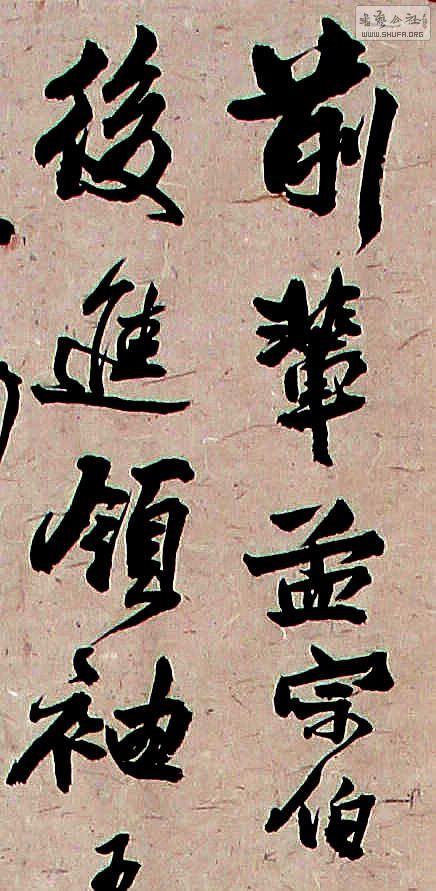 書藝公社
WWW.SHUFA.ORG
前輩孟宗伯
後進領袖